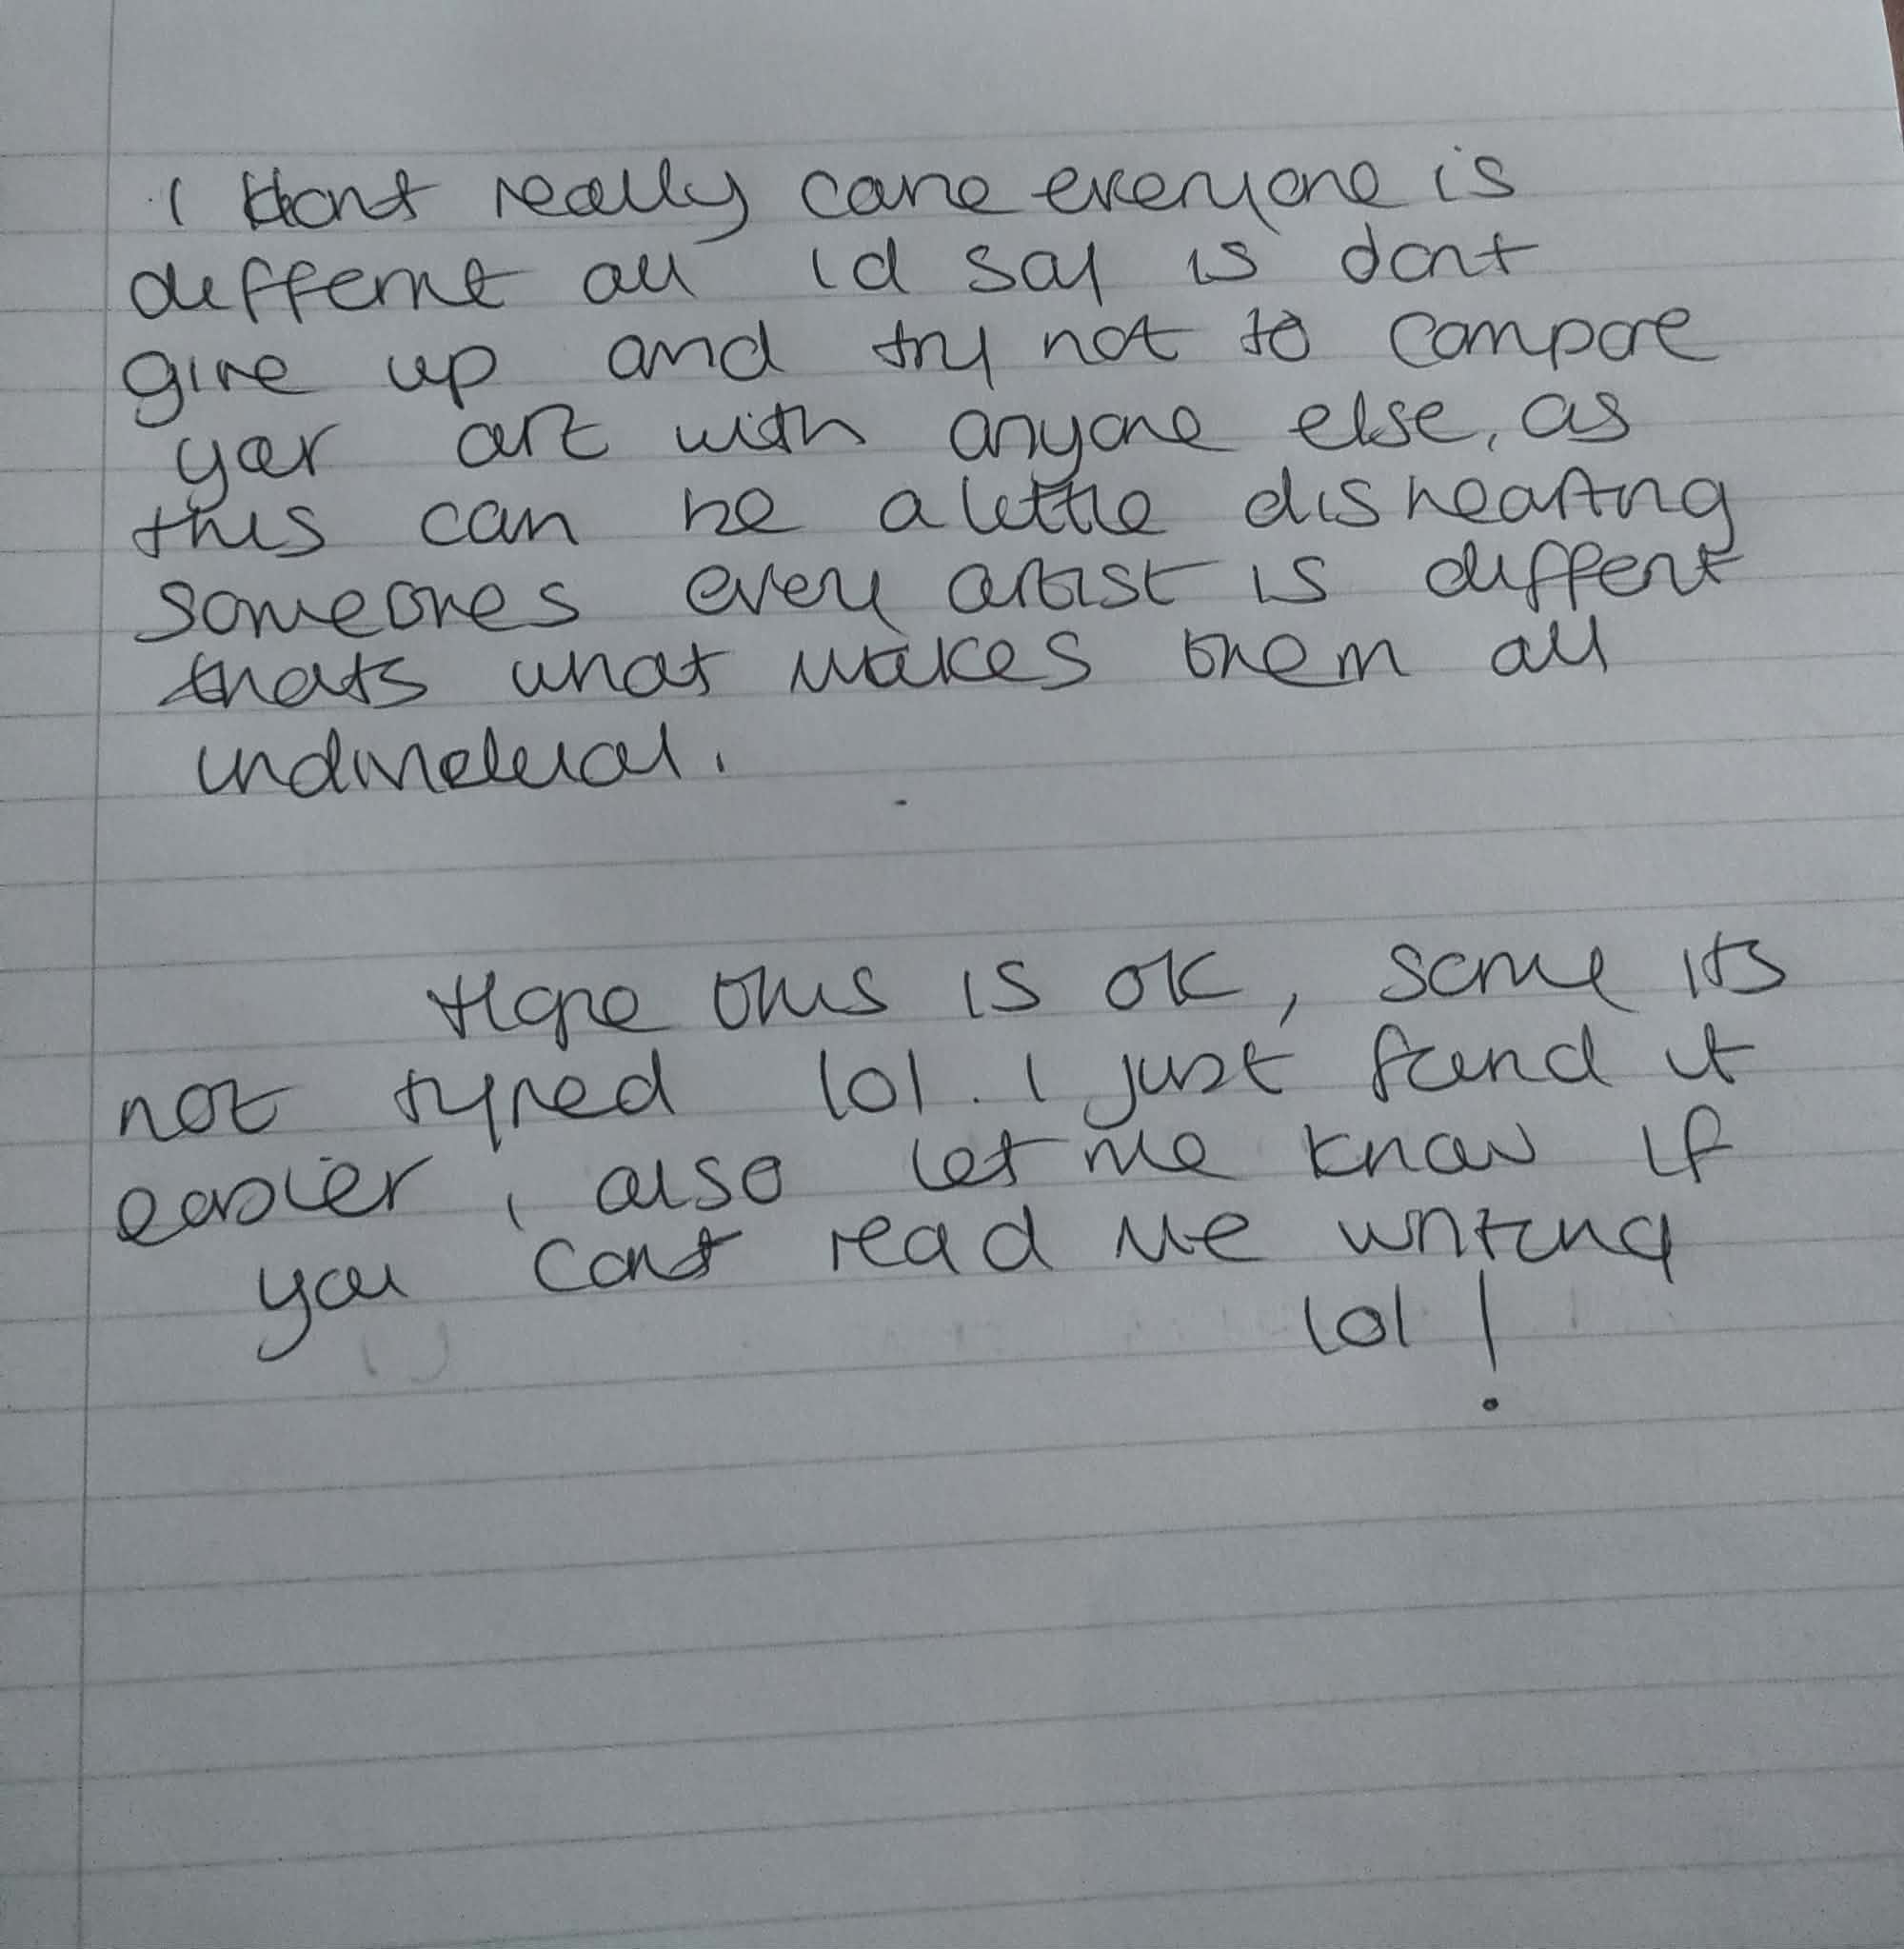 I dont really care everyone is
differnt all id say is dont
give up and try not to compare
your art with anyone else, as
this can be a little disheartng
someones every artist is differt
thats what makes them all
individual.
Hope this is ok, some its
not typed lol. I just found it
easier, also let me know if
you cant read me writing
lol!